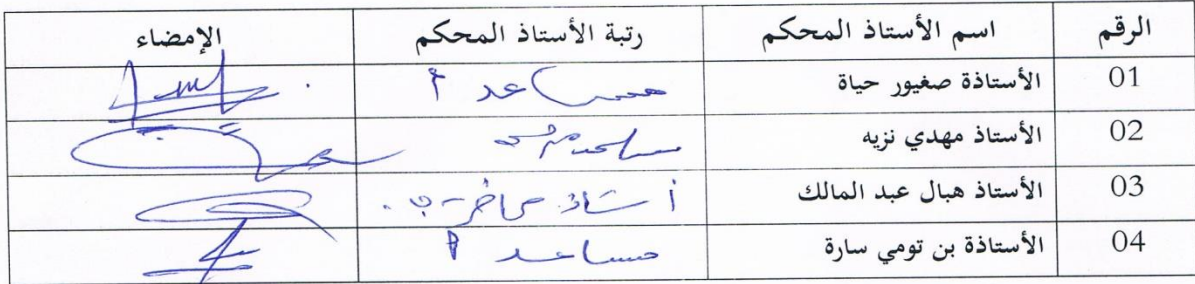 الرقم اسم الأستاذ المحكم رتبة الأستاذ المحكم الإمضاء
01 الأستاذة صغيور حياة مساعد أ
02 الأستاذ مهدي نزيه
03 الأستاذ هبال عبد المالك أستاذ محاضر - ب .
04 الأستاذة بن تومي سارة مساعد أ